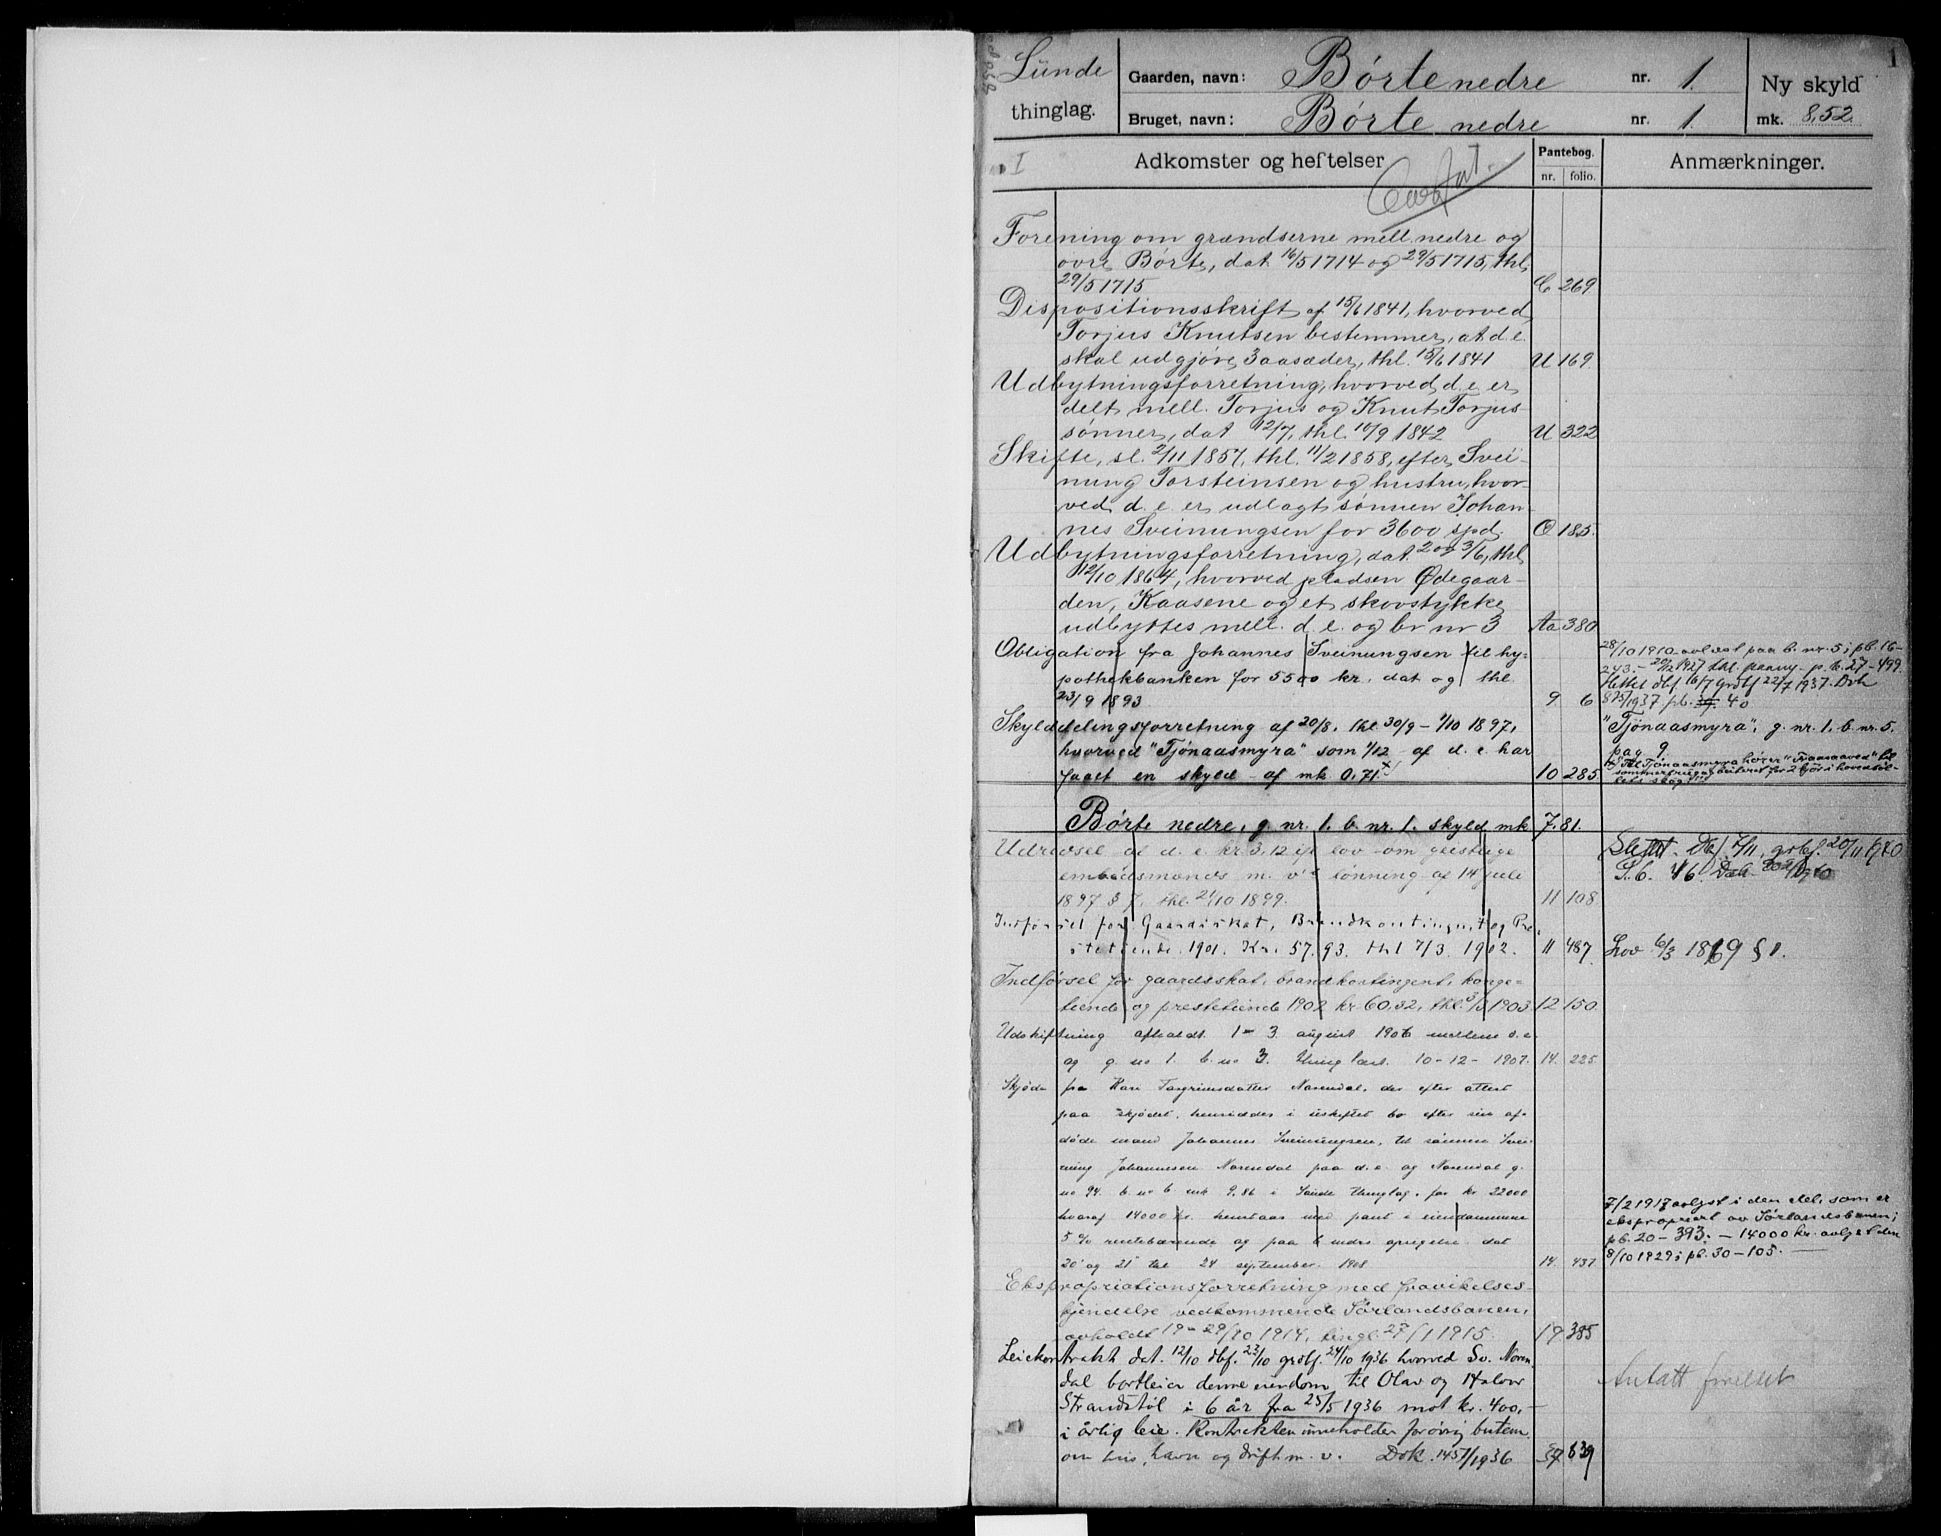 1
Lunde
thinglag.
Gaarden, navn: Børte nedre nr. 1.
Bruget, navn: Børte nedre nr. 1.
Ny skyld
mk. 8,52.
I
Adkomster og heftelser
Pantebog.
nr. folio.
Anmærkninger.
Forening om grændserne mell. nedre og
øvre Børte, dat. 16/5 1714 og 29/5 1715, thl.
29/5 1715 C 269
Dispositionsskrift af 15/6 1841, hvorved
Torjus Knutsen bestemmer, at d. e.
skal udgjøre 3 aasæder, thl. 15/6 1841 U 169.
Udbytningsforretning, hvorved d. e. er
delt mell. Torjus og Knut Torjus-
sønner, dat 12/7, thl. 10/9 1842 U 322
Skifte, sl. 2/11 1857, thl. 11/2 1858, efter Svei-
nung Torsteinsen og hustru, hvor-
ved d. e. er udlagt sønnen Johan-
nes Sveinungsen for 3600 spd. Ø 185.
Udbytningsforretning, dat. 2 og 3/6, thl
12/10 1864, hvorved pladsen Ødegaar-
den, Kaasene og et skovstykke
udbyttes mell. d. e. og br nr 3 Aa 380
Obligation fra Johannes Sveinungsen til hy-
pothekbanken for 5500 kr. dat og thl.
23/9 1893 9 6
28/10 1910 avløst paa b. nr. 5; pb. 16-
243.- 20/12 1927 thl. paany- p. b. 27-499.
Slettet dbf 16/7 grbf 22/7 1937. Dok
875/1937 pb. 40
Skylddelingsforretning af 20/8, thl 30/9 - 1/10 1897,
hvorved "Tjønaasmyra" som 1/12 af d. e. har
faaet en skyld af mk 0.71 x 10 285.
"Tjønaasmyra", g. nr. 1. b. nr. 5.
pag 9.
Børte nedre, g. nr. 1. b. nr. 1. skyld mk 7.81.
Udredsel af d. e. kr. 3,12 ifl lov om geistlige
embedsmænds m. v's lønning af 14 juli
1897 § 7, thl. 21/10 1899. 11 108
Slettet. Dbf 7/11, grbf. 20/11 1940
P. b. 46.
Indførsel for Gaardskat, Brandkontingent og Pre-
stetiende 1901. Kr. 57.93. thl 7/3 1902. 11 487.
Lov 6/3 1869 § 1.
Indførsel for gaardsskat, brandkontingent, konge-
tiende og prestetiende 1902 kr 60.32, thl. 3/3 1903 12 150.
Udskiftning afholdt 1-3 august 1906 mellem d. e.
og g. no 1. b. no 3. Thinglæst 10-12-1907. 14. 225
Skjøde fra Kari Torgrimsdatter Norendal, der efter attest
paa skjødet, hensidder i uskiftet bo efter sin af-
døde mand Johannes Sveinungsen, til sønnen Svei-
nung Johannesen Norendal paa d. e. og Norendal g.
no 94. b. no 6. mk 9,86 i Saude thinglag, for kr. 22000
hvoraf 14000 kr. henstaar med pant i eiendommene
5 % rentebærende og paa 6 mdrs opsigelse. dat
20 og 21 thl 24 september 1908 14. 437.
7/2 1917 avløst i den del, som er
ekspropriert av Sørlandsbanen;
pb. 20-393. - 14000 kr. avlyst den
8/10 1929; pb. 30-105.
Ekspropriationsforretning med fravikelses-
kjendelse vedkommende Sørlandsbanen,
avholdt 19-29/10 1914, tingl. 27/1 1915. 19 385
Leiekontrakt dat. 12/10 dbf. 23/10 grbf. 24/10 1936 hvorved Sv. Noren-
dal bortleier denne eiendom til Olav og Halvor
Strandstøl i 6 år fra 25/5 1936 mot kr. 400,-
i årlig leie. Kontrakten inneholder forøvrig bestem.
om hus, havn og drift m. v. Dok. 1451/1936 37 839
Antatt forældet